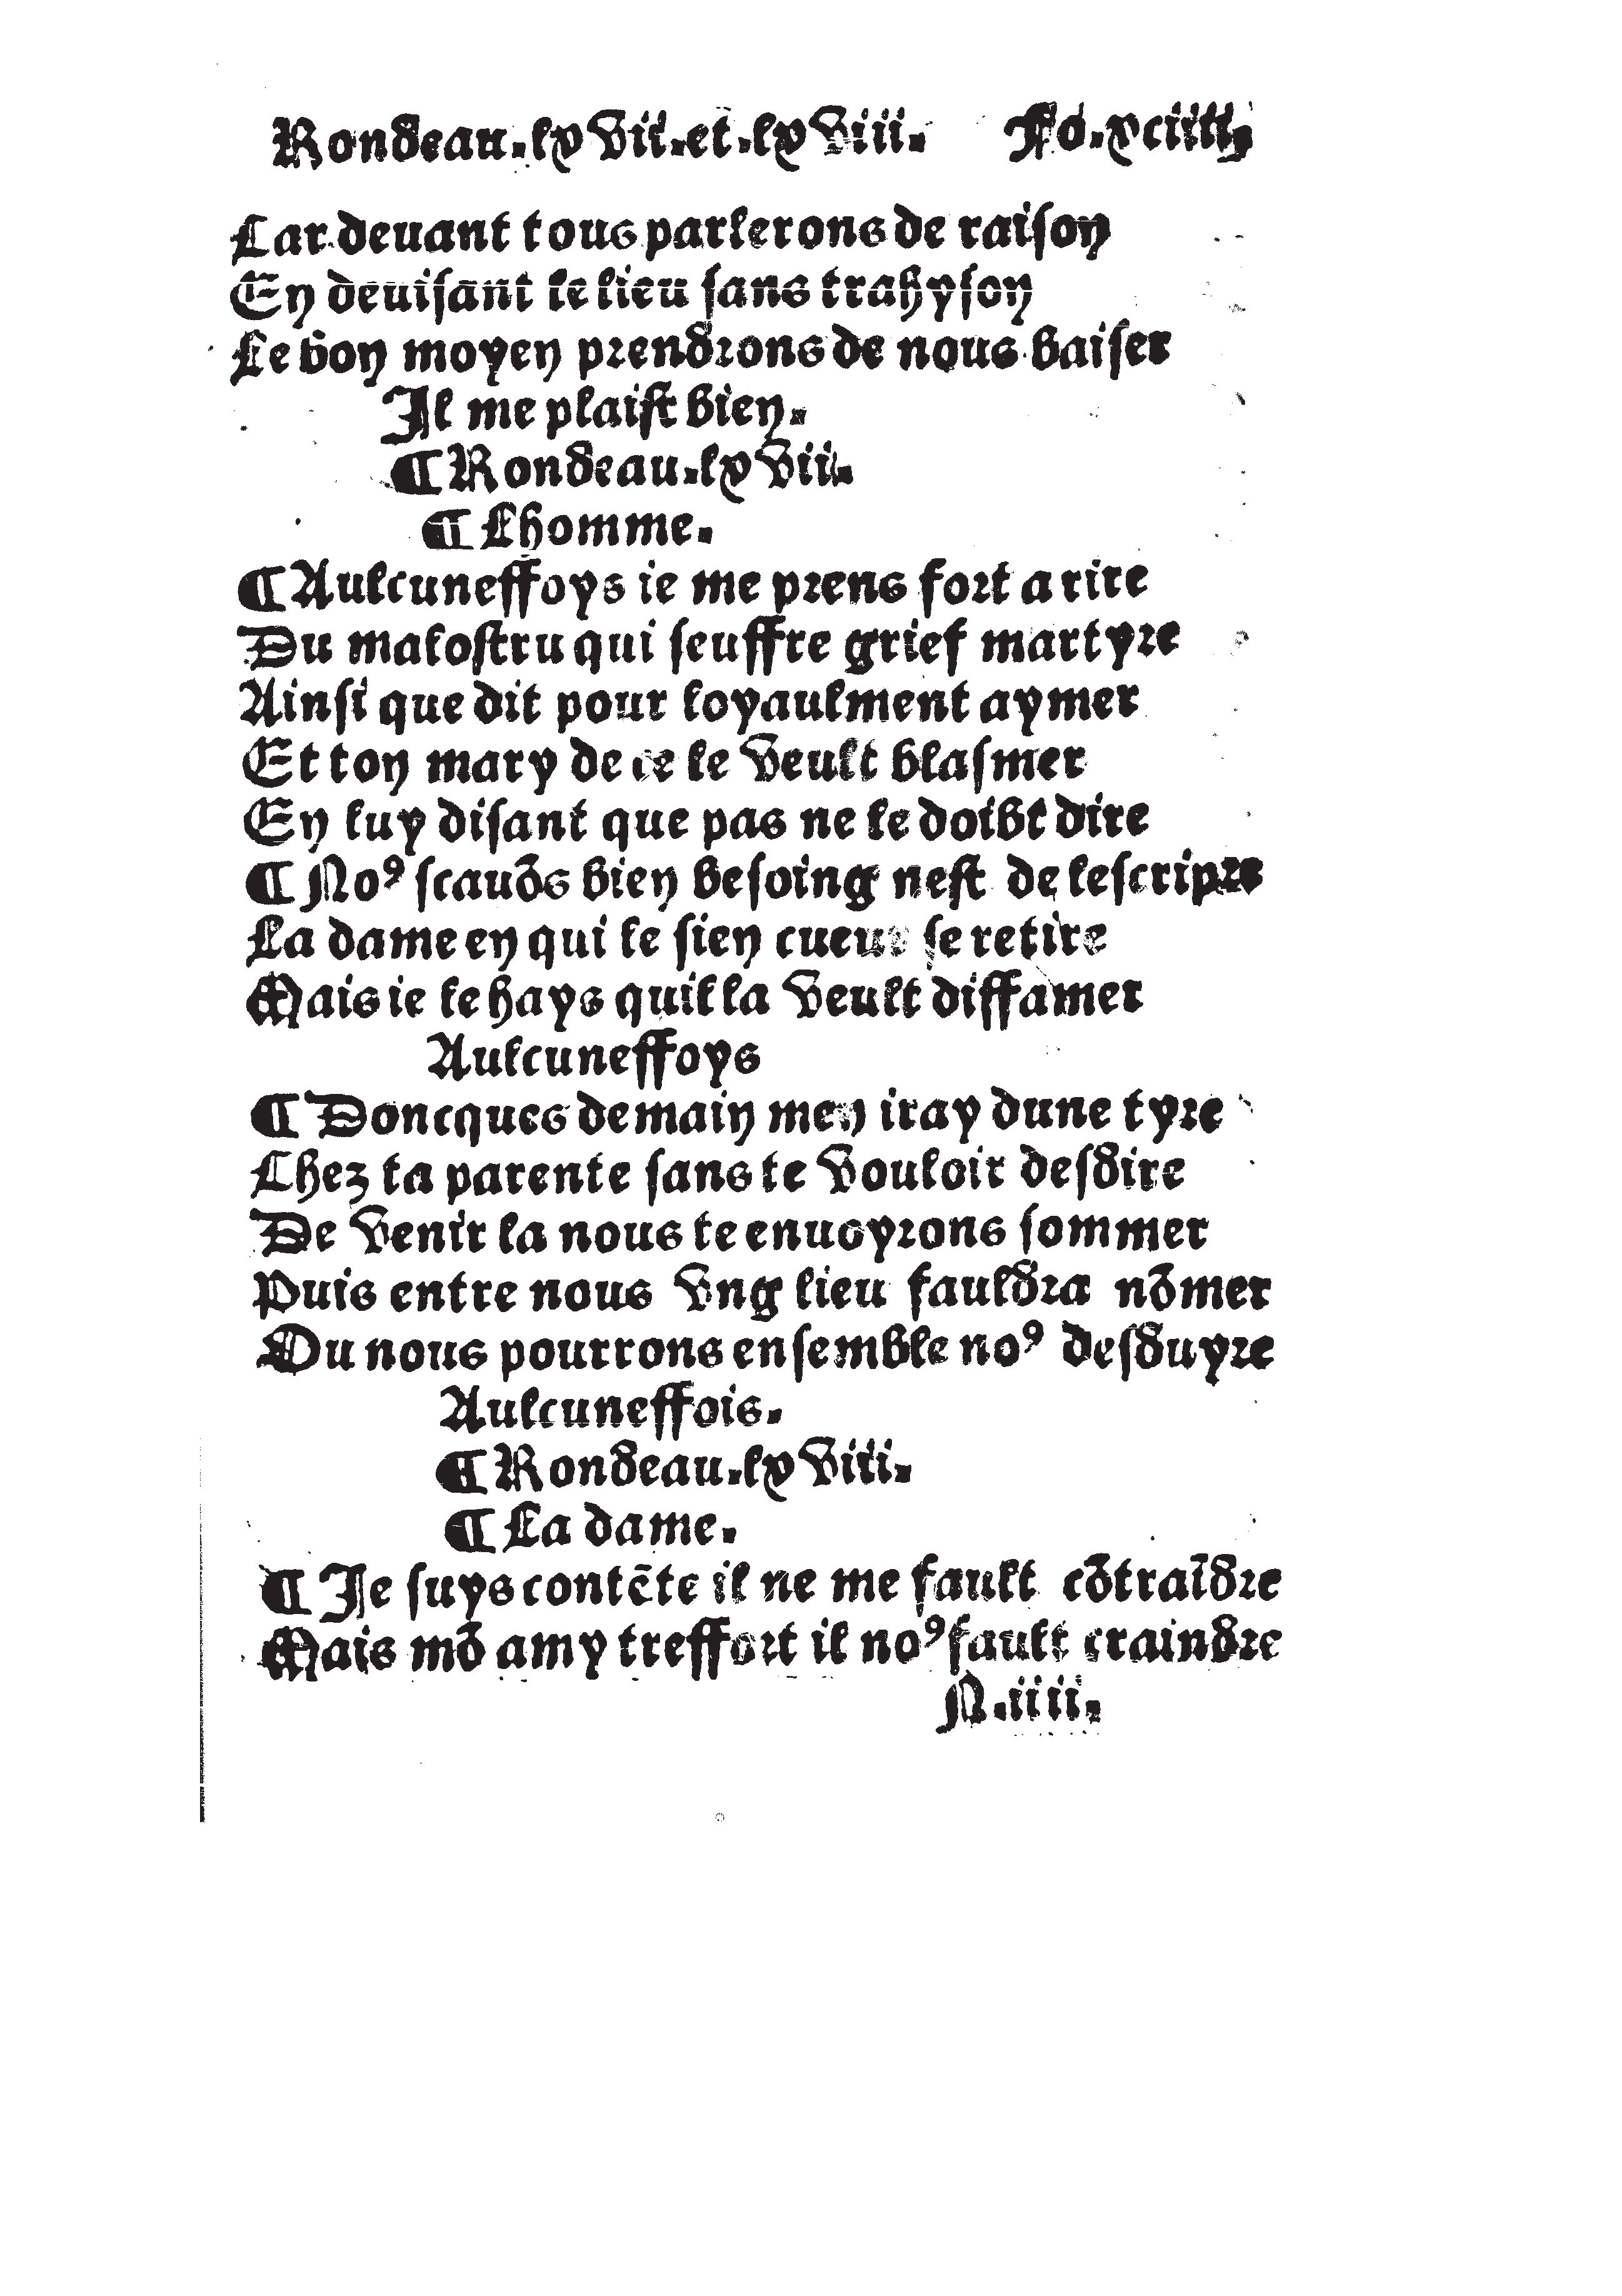 Rondeau.lxvii.et.lxviii. Fo.xciiii.
Car deuant tous parlerons de raison
En deuisant le lieu sans trahyson
Le bon moyen prendrons de nous baiser
Il me plaist bien.
¶ Rondeau.lxvii.
¶ Lhomme.
¶ Aulcuneffoys ie me prens fort a rire
Du malostru qui seuffre grief martyre
Ainsi que dit pour loyaulment aymer
Et ton mary de ce le veult blasmer
En luy disant que pas ne le doibt dire
¶ Noꝰ scauõs bien besoing nest de lescripre
La dame en qui le sien cueur se retire
Mais ie le hays quil la veult diffamer
Aulcuneffoys
¶ Doncques demain men iray dune tyre
Chez ta parente sans te vouloir desdire
De venir la nous te enuoyrons sommer
Puis entre nous vng lieu fauldra nõmer
Ou nous pourrons ensemble noꝰ desduyre
Aulcuneffois.
¶ Rondeau.lxviii.
¶ La dame.
¶ Je suys contẽte il ne me fault cõtraĩdre
Mais mõ amy treffort il noꝰ fault craindre
N.iiii.